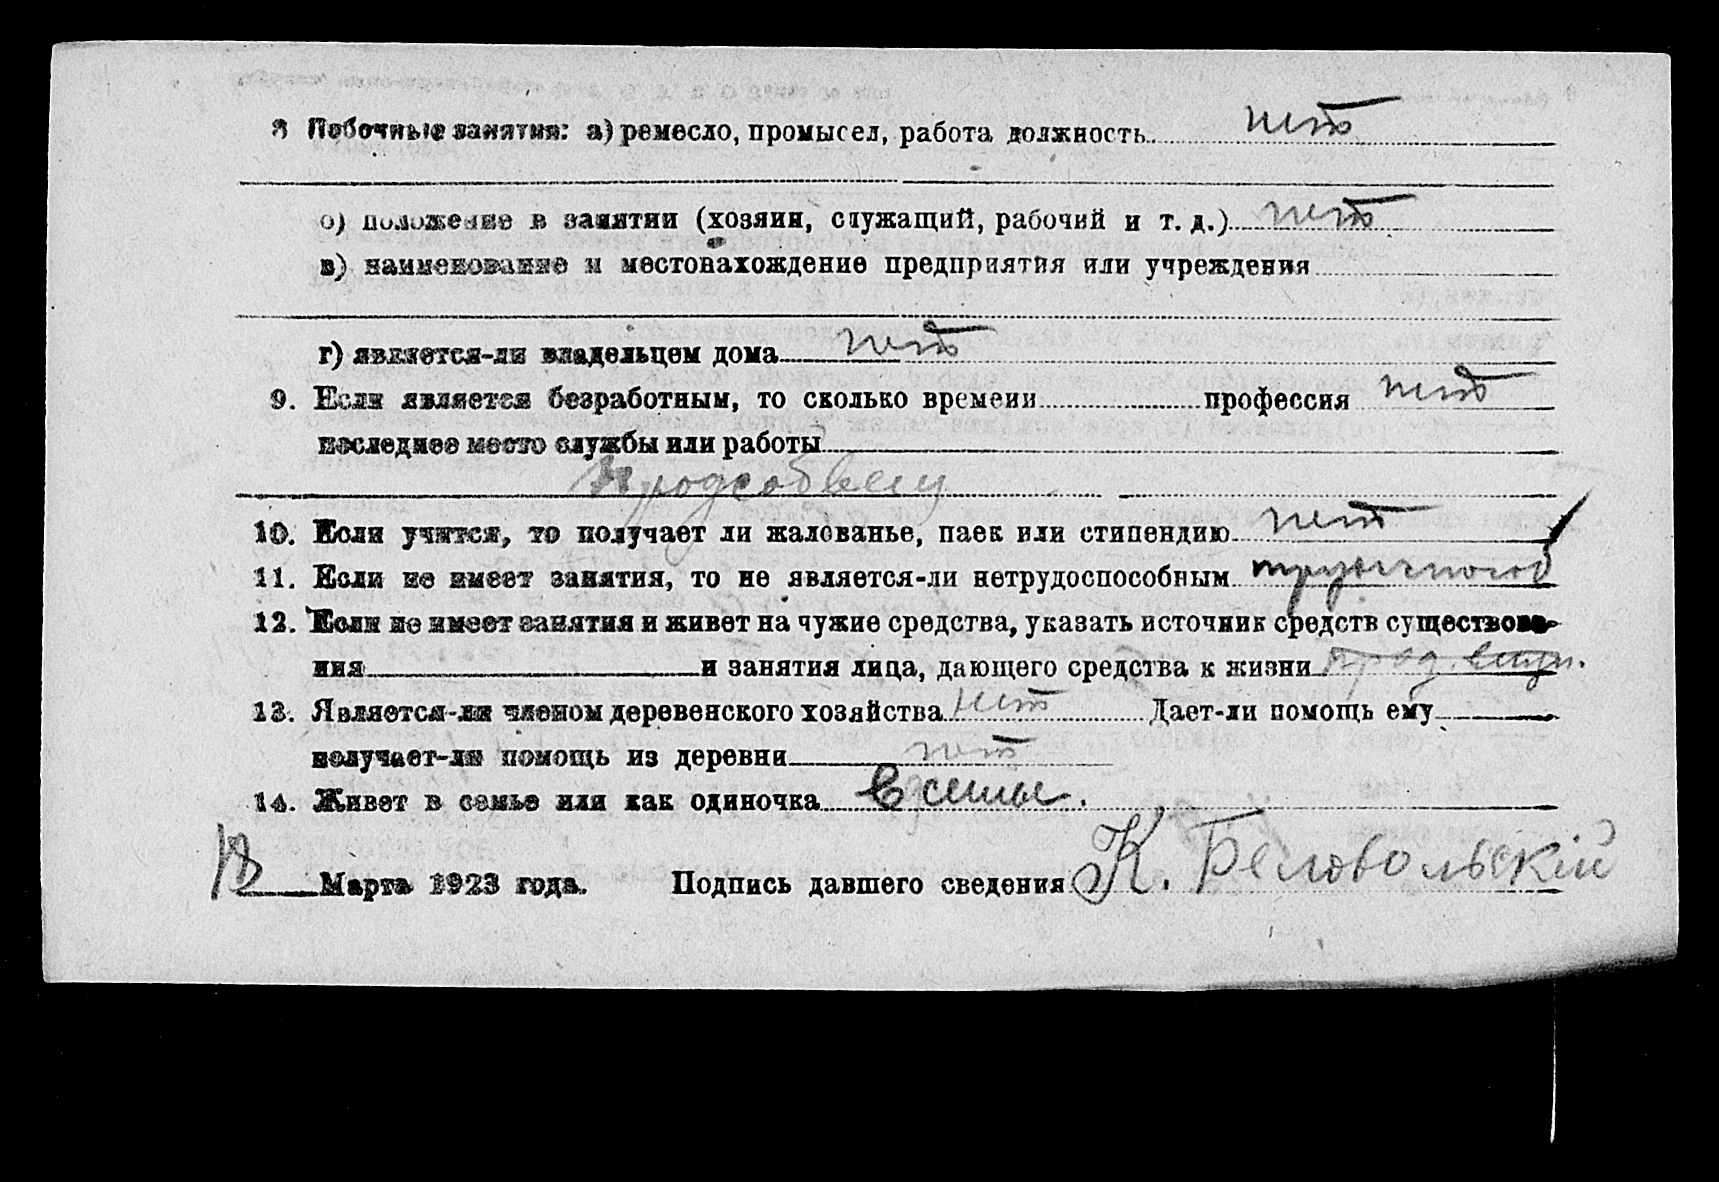 8 Побочные занятия: а) ремесло, промысел, работа должность нет
б) положение в занятии (хозяин, служащий, рабочий и т. д.) нет
в) наименование и местонахождение предприятия или учреждения
г) является-ли владельцем дома нет
9. Если является безработным, то сколько времени профессия нет
последнее место службы или работы
10. Если учится, то получает ли жалованье, паек или стипендию нет
11. Если не имеет занятия, то не является-ли нетрудоспособным трудоспособ
12. Если не имеет занятия и живет на чужие средства, указать источник средств существова-
ния и занятия лица, дающего средства к жизни
13. Является-ли членом деревенского хозяйства нет Дает-ли помощь ему
получает-ли помощь из деревни нет
14. Живет в семье или как одиночка в семье.
Марта 1923 года. Подпись давшего сведения К. Беловольскій